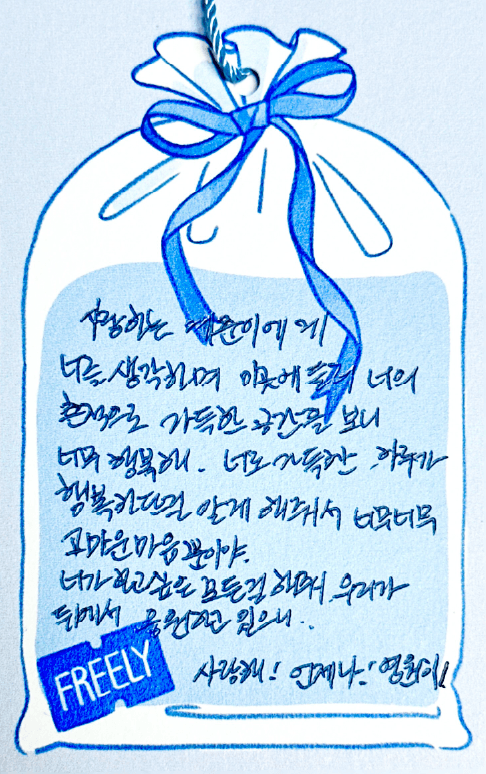 사랑하는 예준이에게
너를 생각하며 이곳에 들러 너의
흔적으로 가득한 공간을 보니
너무 행복해. 너로 가득한 하루가
행복하단걸 알게 해줘서 너무너무
고마운마음뿐이야.
너가 하고싶은 모든걸 해줘. 우리가
뒤에서 응원하고 있으니..
사랑해! 언제나! 영원히!
FREELY